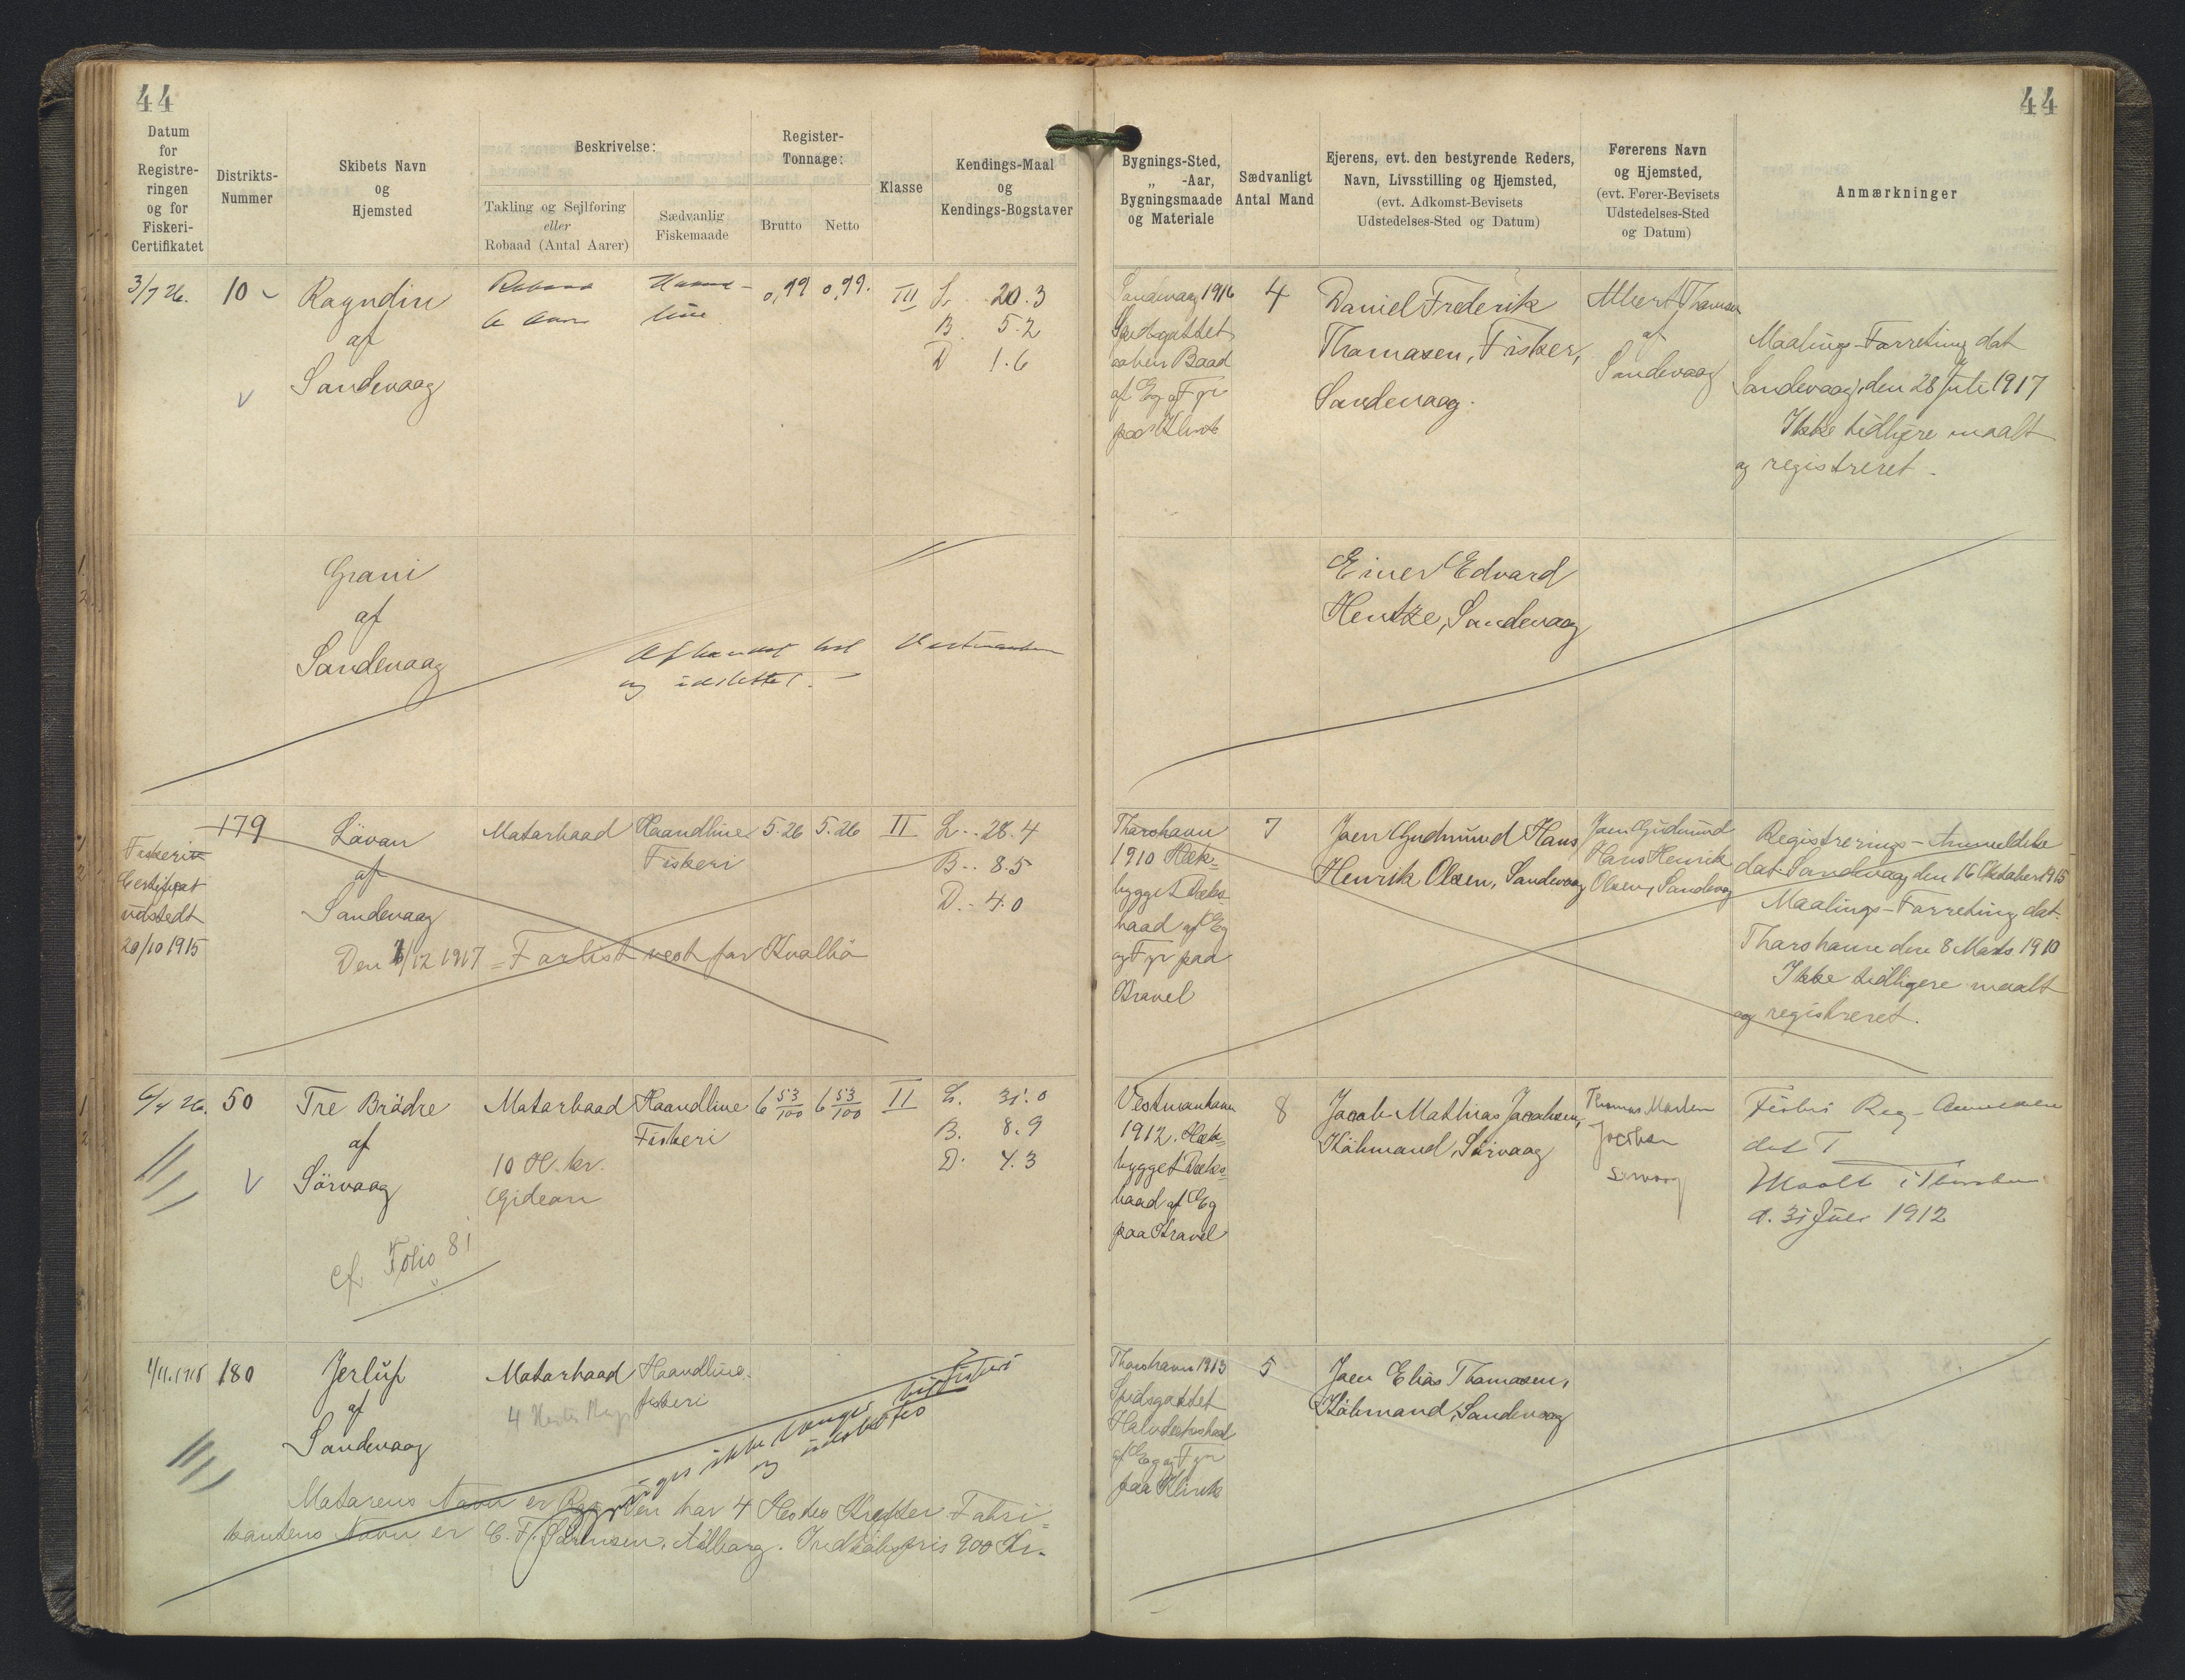 44
44
Datum
for
Registre-
ringen
og for
Fiskeri-
Certifikatet
Distrikts-
Nummer
Skibets Navn
og
Hjemsted
Beskrivelse:
Takling og Sejlføring
eller
Robaad (Antal Aarer)
Sædvanlig
Fiskemaade
Register-
Tonnage:
Brutto
Netto
Klasse
Kendings-Maal
og
Kendings-Bogstaver
Bygnings-Sted,
„ -Aar,
Bygningsmaade
og Materiale
Sædvanligt
Antal Mand
Ejerens, evt. den bestyrende Reders,
Navn, Livsstilling og Hjemsted,
(evt. Adkomst-Bevisets
Udstedelses-Sted og Datum)
Førerens Navn
og Hjemsted,
(evt. Fører-Bevisets
Udstedelses-Sted
og Datum)
Anmærkninger
3/7 26.
10
Ragndin
af
Sandevaag
Robaad
6 Aarer
Haand-
line
0,99
0,99.
III
L. 20.3
B. 5.2
D 1.6
Sandevaag 1916
Spidsgattet
aaben Baad
af Eg og Fyr
paa Klink
4
Daniel Frederik
Thomasen, Fisker,
Sandevaag.
Albert Thomsen
af
Sandevaag
Maalings-Forretning dat
Sandevaag, den 28 Juli 1917
Ikke tidligere maalt
og registreret
Grani
af
Sandevaag
Afhændet til Vestmanhavn
og udslettet.
Einer Edvard
Hentze, Sandevaag
179
Fiskeri
Certifikat
udstedt
20/10 1915
Lövan
af
Sandevaag
Den 1/12 1917 = Forlist vest for Kvalbö
Motorbaad
Haandline
Fiskeri
5.26
5.26
II
L.. 28.4
B.. 8.5
D.. 4.0
Thorshavn
1910 Hæk-
bygget Dæks-
baad af Eg
og Fyr paa
Kravel
7
Joen Gudmund Hans
Henrik Olsen, Sandevaag
Joen Gudmund
Hans Henrik
Olsen, Sandevaag
Registrerings-Anmeldelse
dat Sandevaag den 16 Oktober 1915
Maalings-Forretning dat.
Thorshavn den 8 Marts 1910
Ikke tidligere maalt
og registreret.
6/4 26.
50
Tre Brödre
af
Sörvaag
cf. Folio 81
Motorbaad
10 H. kr.
Gideon
Haandline
Fiskeri
6 53/100
6 53/100
II
L. 31.0
B. 8.9
D. 4.3
Vestmanhavn
1912. Hæk-
bygget Dæks-
baad af Eg
paa Kravel
8
Jacob Mathias Jacobsen,
Köbmand, Sörvaag
Thomas Morten
Jacobsen
Sörvaag
Maalt i Thorshavn
d. 31 Juli 1912
1/11.1915
180
Jerlup
af
Sandevaag
Motorbaad
4 Hestes
Haandline-
fiskeri
ikke længer til Fiskeri
og udslettes
Motorens Navn er Den har 4 Hestes Kræfter Fabri-
kantens Navn er C. F. Sörensen, Aalborg. Indköbspris 900 Kr.
Thorshavn 1913
Spidsgattet
Halvdæksbaad
af Eg og Fyr
paa Klink
5
Joen Elias Thomasen,
Köbmand, Sandevaag